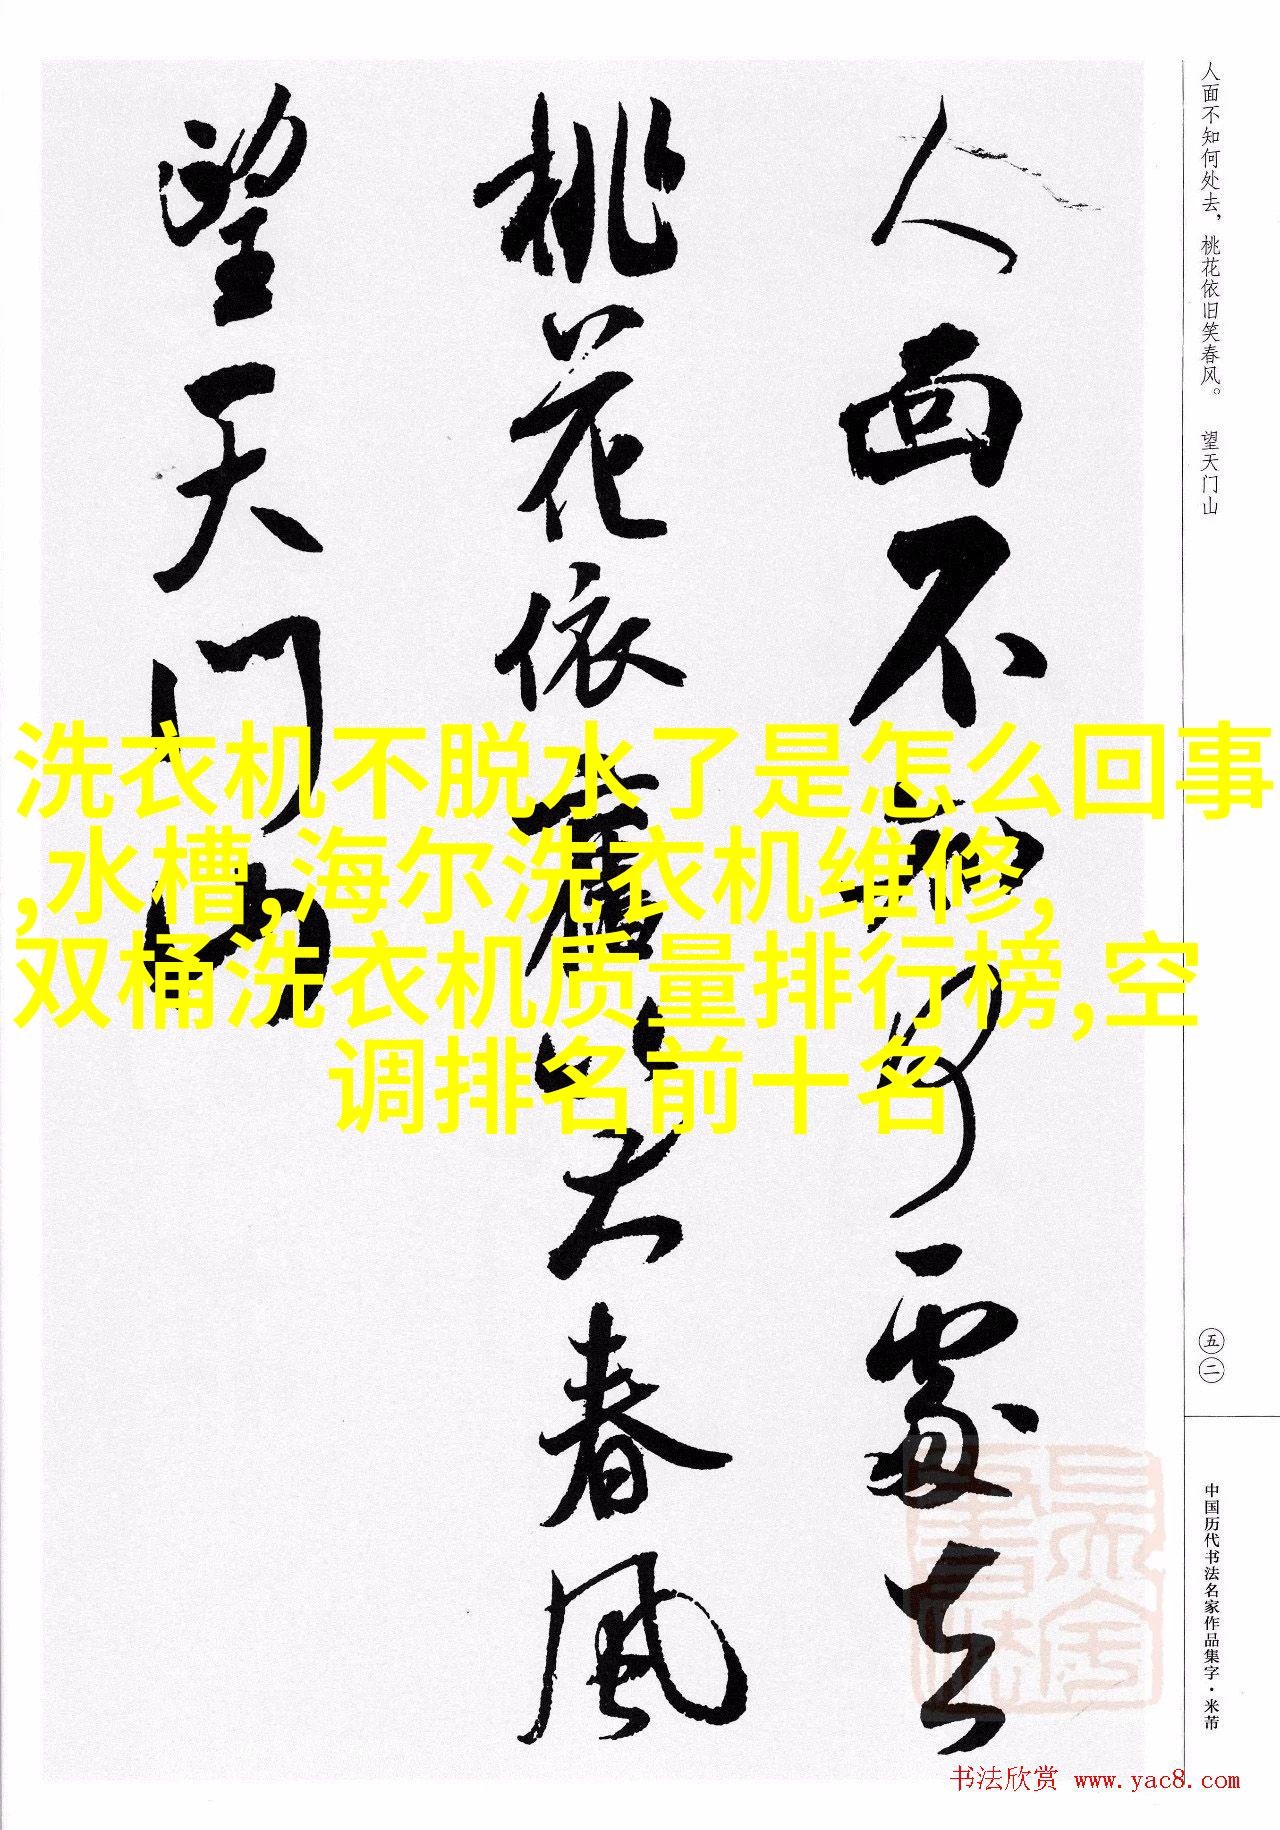 人面不知何处去，桃花依旧笑春风。 望天门山
人面不知何處去
桃花依舊笑春風
望天门山
洗衣机不脱水了是怎么回事
,水槽,海尔洗衣机维修,
双桶洗衣机质量排行榜,空
调排名前十名
五二
中国历代书法名家作品集字·米芾
书法欣赏 www.yac8.com